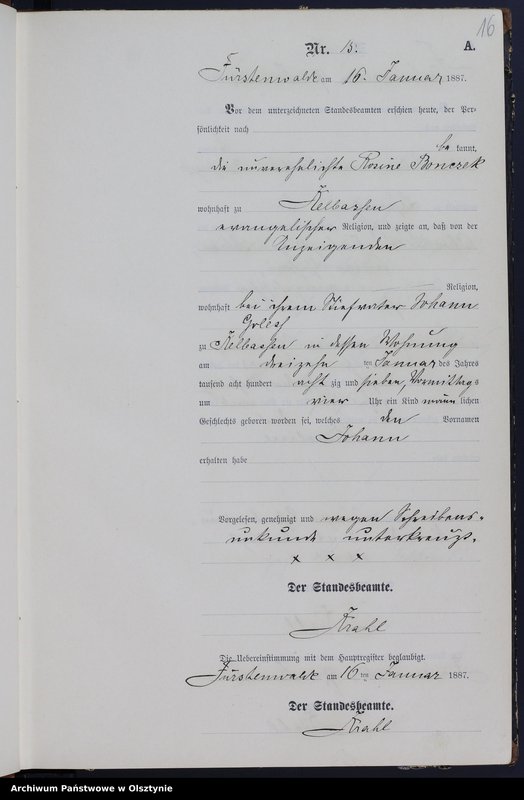 16
Nr. 13. A.
Fürstenwalde am 16. Januar 1887.
Vor dem unterzeichneten Standesbeamten erschien heute, der Per-
sönlichkeit nach
be kannt,
die unverehelichte Rosine Bonczek
wohnhaft zu Kelbassen
evangelischer Religion, und zeigte an, daß von der
Anzeigenden
Religion,
wohnhaft bei ihrem Stiefvater Johann
zu Kelbassen in dessen Wohnung
am dreizehn ten Januar des Jahres
tausend acht hundert acht zig und sieben, Vormittags
um vier Uhr ein Kind männ lichen
Geschlechts geboren worden sei, welches den Vornamen
Johann
erhalten habe
Vorgelesen, genehmigt und wegen Schreibens-
unkunde unterkreuzt.
x x x
Der Standesbeamte.
Krahl
Die Uebereinstimmung mit dem Hauptregister beglaubigt.
Fürstenwalde am 16 ten Januar 1887.
Der Standesbeamte.
Krahl
Archiwum Państwowe w Olsztynie